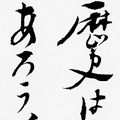 歴史は
あろう